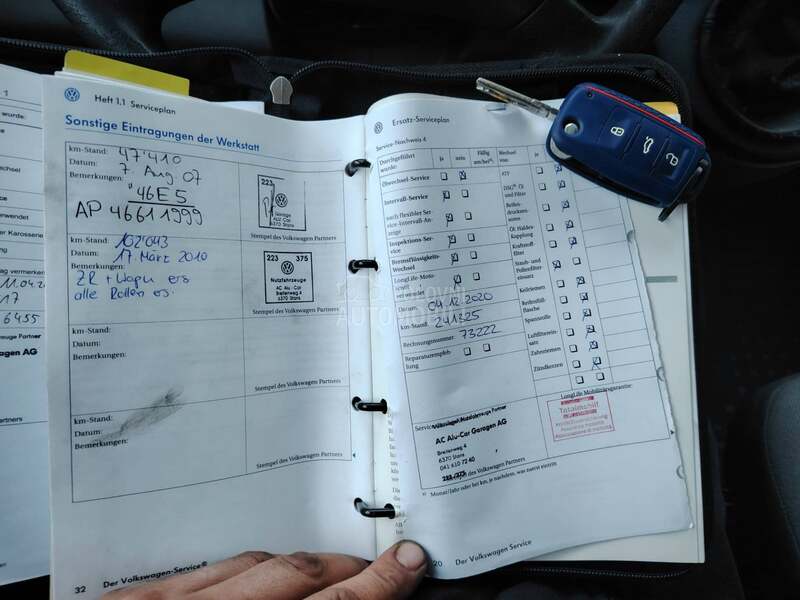 Heft 1.1 Serviceplan
Sonstige Eintragungen der Werkstatt
km-Stand: 47'410
Datum: 7 Aug. 07
Bemerkungen: "46E5
AP 46611999
223
6370 Stans
Stempel des Volkswagen Partners
km-Stand: 102'043
Datum: 17. März 2010
Bemerkungen:
ZR + Wapu ers
alle Rollen ers.
223 375
Nutzfahrzeuge
AC Alu-Car
Breitenweg 4
6370 Stans
Stempel des Volkswagen Partners
km-Stand:
Datum:
Bemerkungen:
Stempel des Volkswagen Partners
km-Stand:
Datum:
Bemerkungen:
Stempel des Volkswagen Partners
32 Der Volkswagen-Service®
Ersatz-Serviceplan
Service-Nachweis 4
Durchgeführt wurde: ja nein Fällig am/bei¹⁾
Ölwechsel-Service
Intervall-Service
nach flexibler Service-Intervall-Anzeige
Inspektions-Service
Bremsflüssigkeits-Wechsel
LongLife-Motorenöl verwendet
Datum: 04.12.2020
km-Stand: 241325
Rechnungsnummer: 73222
Reparaturempfehlung
Wechsel von: ja
ATF
DSG® Öl und Filter
Öl Haldex-Kupplung
Kraftstofffilter
Staub- und Pollenfiltereinsatz
Keilriemen
Spannrolle
Luftfiltereinsatz
Zahnriemen
Zündkerzen
LongLife Mobilitätsgarantie:
Totalmobil
AC Alu-Car Garagen AG
Breitenweg 4
6370 Stans
041 610 72 40
Stempel des Volkswagen Partners
¹⁾ Monat/Jahr oder bei km, je nachdem, was zuerst eintritt
20 Der Volkswagen Service